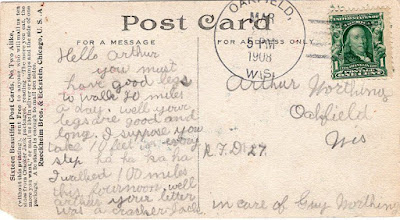 Post Card
FOR A MESSAGE
FOR ADDRESS ONLY
OAKFIELD,
MAR
5 PM
1908
WIS.
Hello Arthur
you must
have good legs
to walk 20 miles
a day. well your
legs are good and
long. I suppose you
take 10 feet in every
step ha ha ha ha
I walked 100 miles
this fournoon. well
arthur your letter
was a cracker jack.
Arthur Worthing
Oakfield
Wis
R.F.D. 27.
in care of Guy Worthing
Sixteen Beautiful Post Cards, No Two Alike,
Rueckheim Bros. & Eckstein, Chicago, U. S. A.